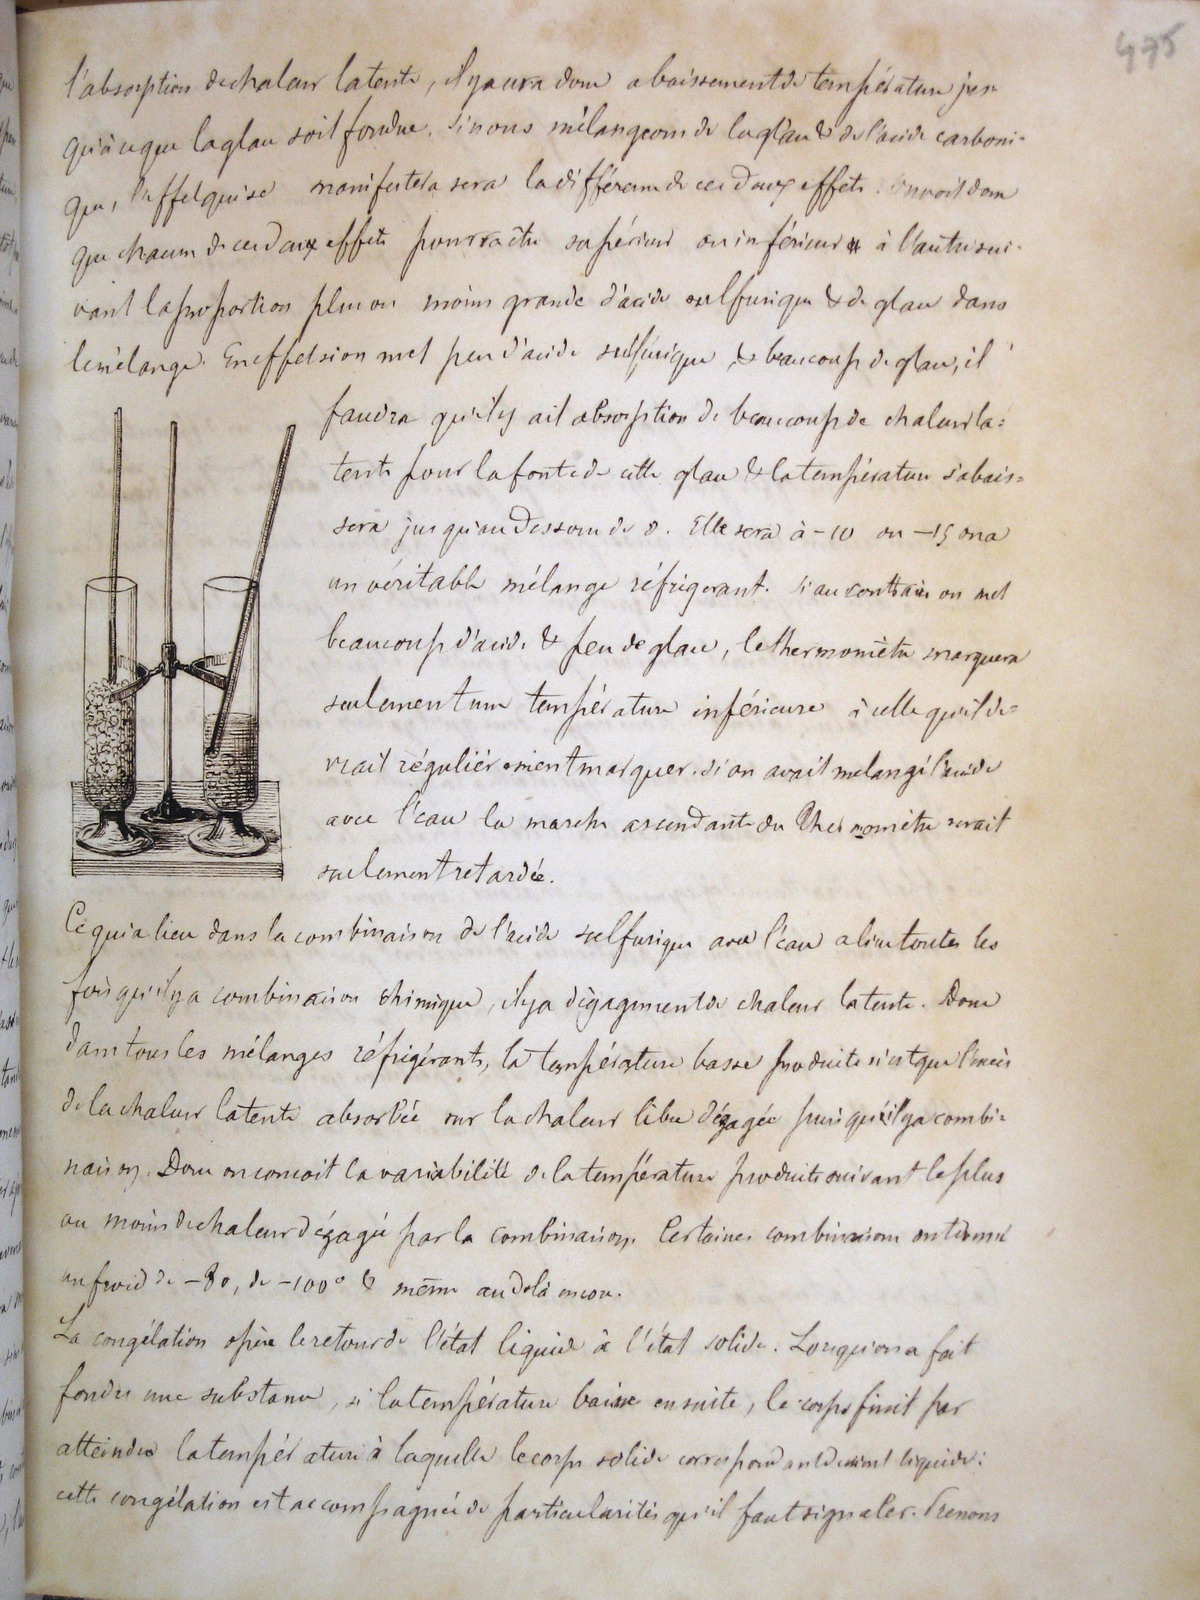 475
l'absorption de chaleur latente, il y aura donc abaissement de température jus-
qu'à ce que la glace soit fondue. Si nous mélangeons de la glace & de l'acide carboni-
que, l'effet qui se manifestera sera la différence de ces deux effets. On voit donc
que chacun de ces deux effets pourra être supérieur ou inférieur à l'autre sui-
vant la proportion plus ou moins grande d'acide sulfurique & de glace dans
le mélange. En effet si on met peu d'acide sulfurique & beaucoup de glace, il
faudra qu'il y ait absorption de beaucoup de chaleur la=
tente pour la fonte de cette glace & la température s'abais=
sera jusqu'au dessous de 0. Elle sera à -10 ou -15 on a
un véritable mélange réfrigerant. Si au contraire on met
beaucoup d'acide & peu de glace, le thermomètre marquera
seulement une température inférieure à celle qu'il de=
vrait régulièrement marquer. Si on avait mélangé l'acide
avec l'eau la marche ascendante du thermomètre serait
seulement retardée.
Ce qui a lieu dans la combinaison de l'acide sulfurique avec l'eau a lieu toutes les
fois qu'il y a combinaison chimique, il y a dégagement de chaleur latente. Donc
dans tous les mélanges réfrigérants, la température basse produite n'est que l'excès
de la chaleur latente absorbée sur la chaleur libre dégagée puisqu'il y a combi=
naison. Donc on conçoit la variabilité de la température produite suivant le plus
ou moins de chaleur dégagée par la combinaison. Certaines combinaisons ont donné
un froid de -80, de -100° & même au delà encore.
La congélation opère le retour de l'état liquide à l'état solide. Lorsqu'on a fait
fondre une substance, si la température baisse ensuite, le corps finit par
atteindre la température à laquelle le corps solide correspondant devient liquide:
cette congélation est accompagnée de particularités qu'il faut signaler. Prenons